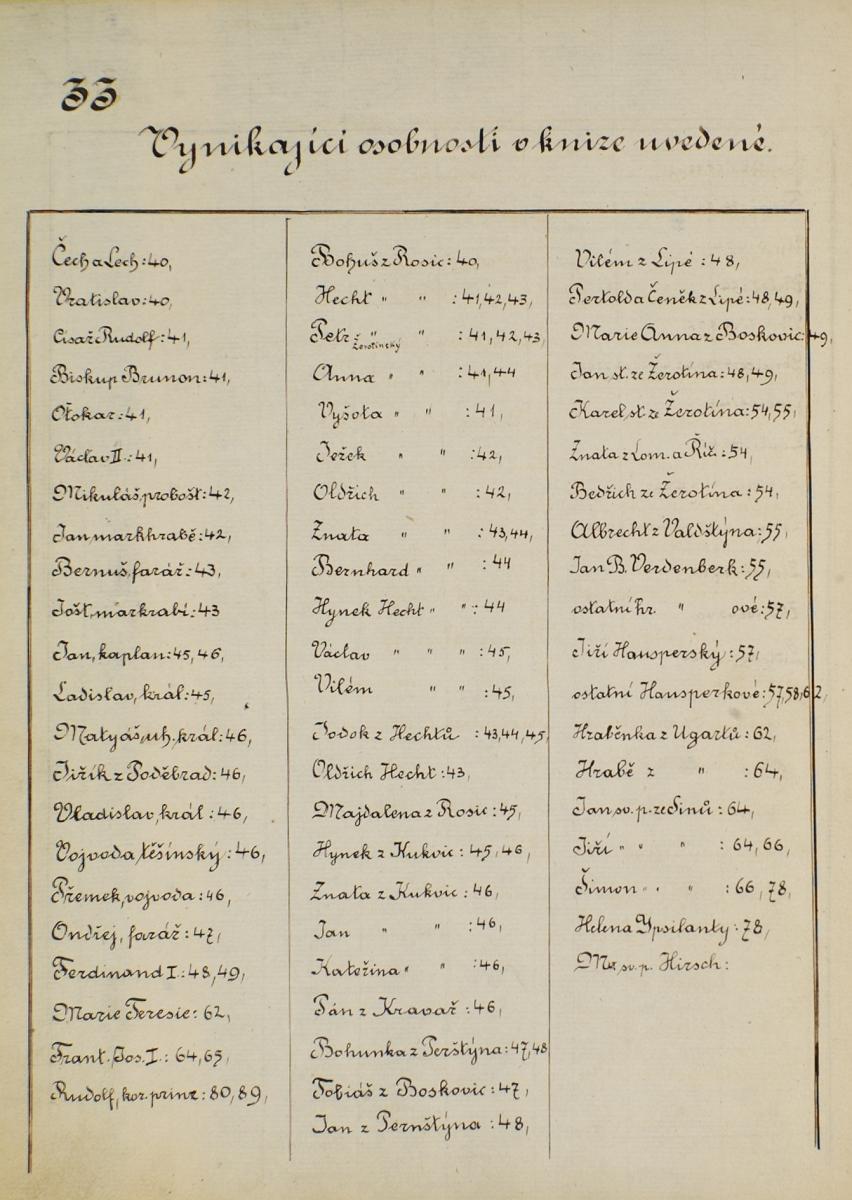 33
Vynikající osobnosti v knize uvedené.
Čech a Lech: 40,
Vratislav: 40,
Císař Rudolf: 41,
Biskup Brunon: 41,
Otokar: 41,
Václav II.: 41,
Mikuláš, probošt: 42,
Jan, markhrabě: 42,
Bernuš, farář: 43,
Jošt, markrabí: 43
Jan, kaplan: 45, 46,
Ladislav, král: 45,
Matyáš, uh. král: 46,
Jiřík z Poděbrad: 46,
Vladislav, král: 46,
Vojvoda těšínský: 46,
Přemek, vojvoda: 46,
Ondřej, farář: 47,
Ferdinand I.: 48, 49,
Marie Teresie: 62,
Frant. Jos. I.: 64, 65,
Rudolf, kor. prinz: 80, 89,
Bohuš z Rosic: 40,
Hecht " " : 41, 42, 43,
Petr " " : 41, 42, 43
Žerotínský
Anna " " : 41, 44
Vyšota " " : 41,
Ježek " " : 42,
Oldřich " " : 42,
Znata " " : 43, 44,
Bernhard " " : 44
Hynek Hecht " " : 44
Václav " " : 45,
Vilém " " : 45,
Jodok z Hechtů : 43, 44, 45,
Oldřich Hecht: 43,
Majdalena z Rosic: 45,
Hynek z Kukvic: 45, 46,
Znata z Kukvic: 46,
Jan " " : 46,
Kateřina " " : 46,
Pán z Kravař: 46,
Bohunka z Perštýna: 47, 48
Tobiáš z Boskovic: 47,
Jan z Pernštýna : 48,
Vilém z Lipé : 48,
Pertold a Čeněk z Lipé: 48, 49,
Marie Anna z Boskovic: 49,
Jan st. ze Žerotína: 48, 49,
Karel, st. ze Žerotína: 54, 55,
Znata z Lom. a Říž.: 54,
Bedřich ze Žerotína: 54,
Albrecht z Valdštýna: 55,
Jan B. Verdenberk: 55,
ostatní hr. " ové: 57,
Jiří Hausperský: 57,
ostatní Hausperkové: 57, 58, 62,
Hraběnka z Ugartů: 62,
Hrabě z " : 64,
Jan, sv. p. ze Sinů: 64,
Jiří " " " : 64, 66,
Šimon " " " : 66, 78,
Helena Ypsilanty: 78,
sv. p. Hirsch: